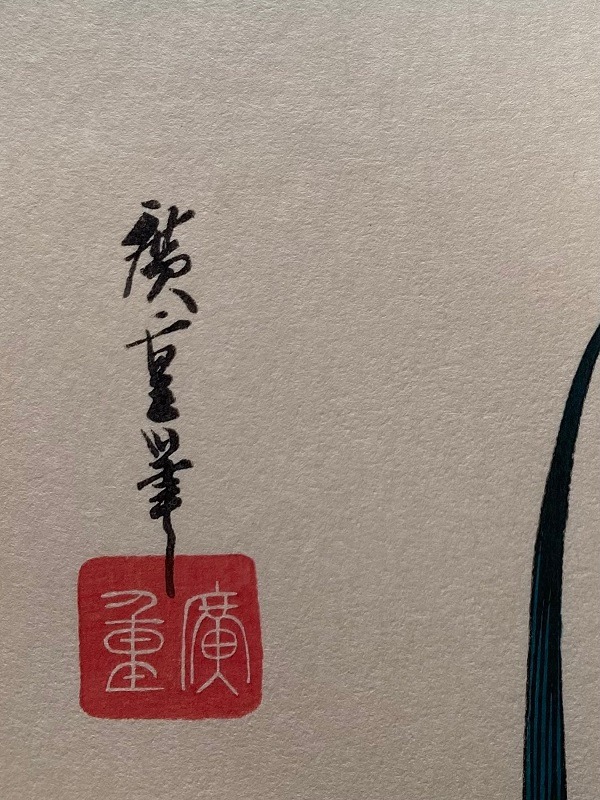 廣重筆
廣重